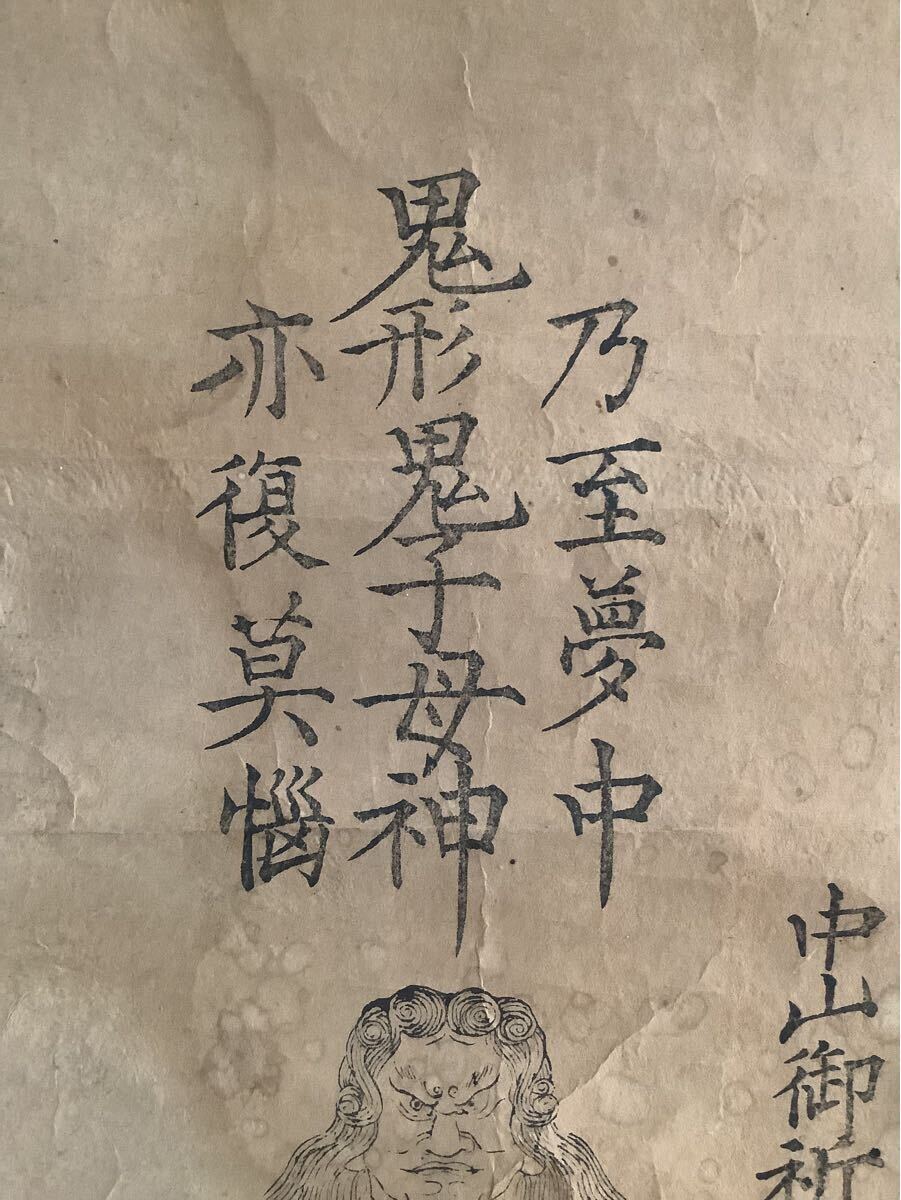 中山御祈
乃至夢中
鬼形鬼子母神
亦復莫惱